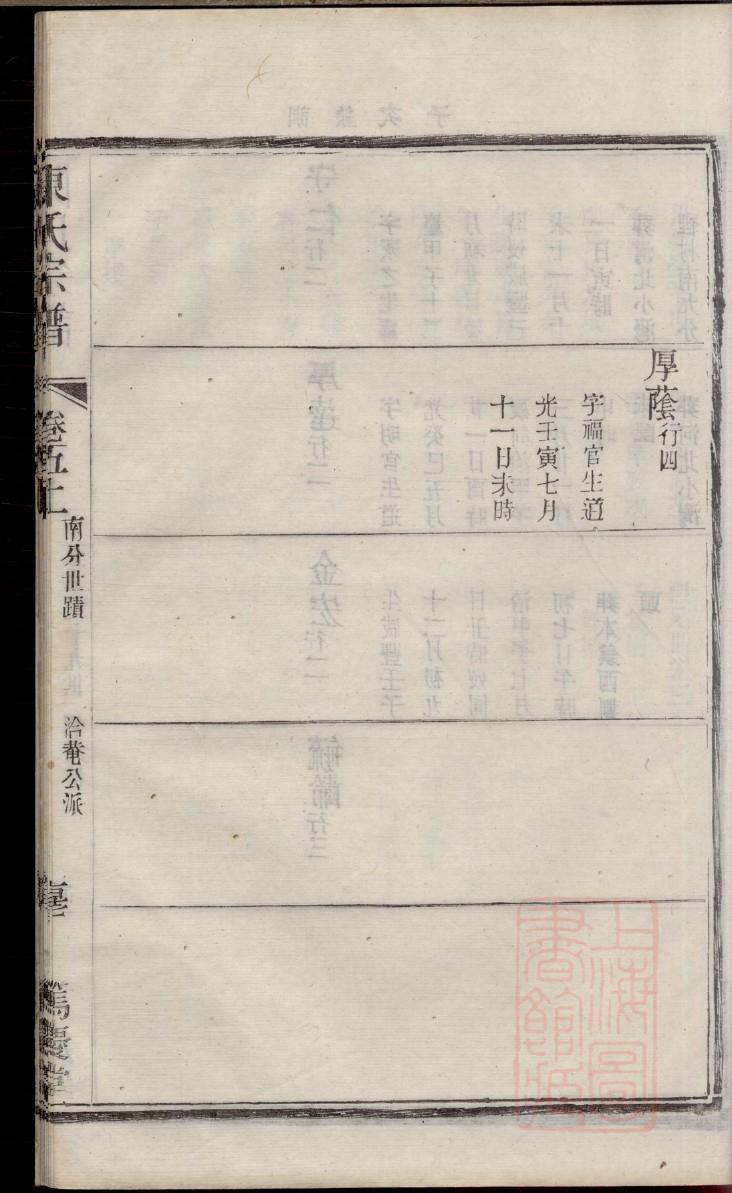 厚蔭行四
字福官生道
光壬寅七月
十一日未時
陳氏宗譜
卷五上
南分世蹟
洽菴公派
篤慶堂
上海圖
書館藏